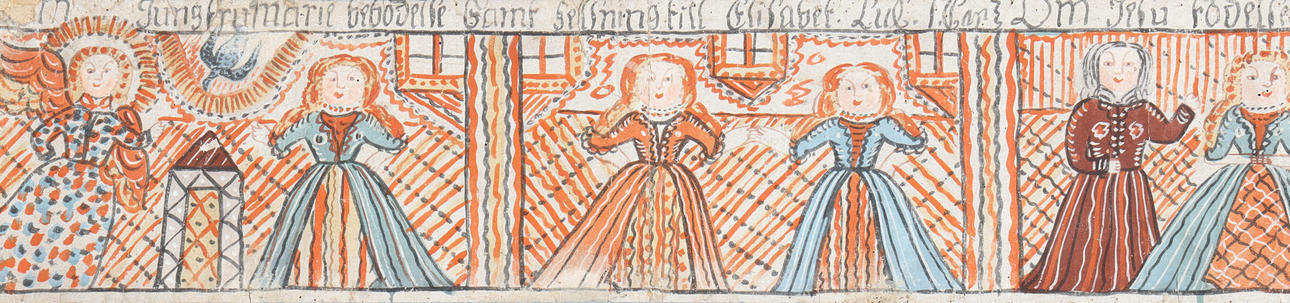 Jungfru Marie bebodelse Samt hellsning till Elisabet. Luc. 1. Cap: Om Jesu födelse